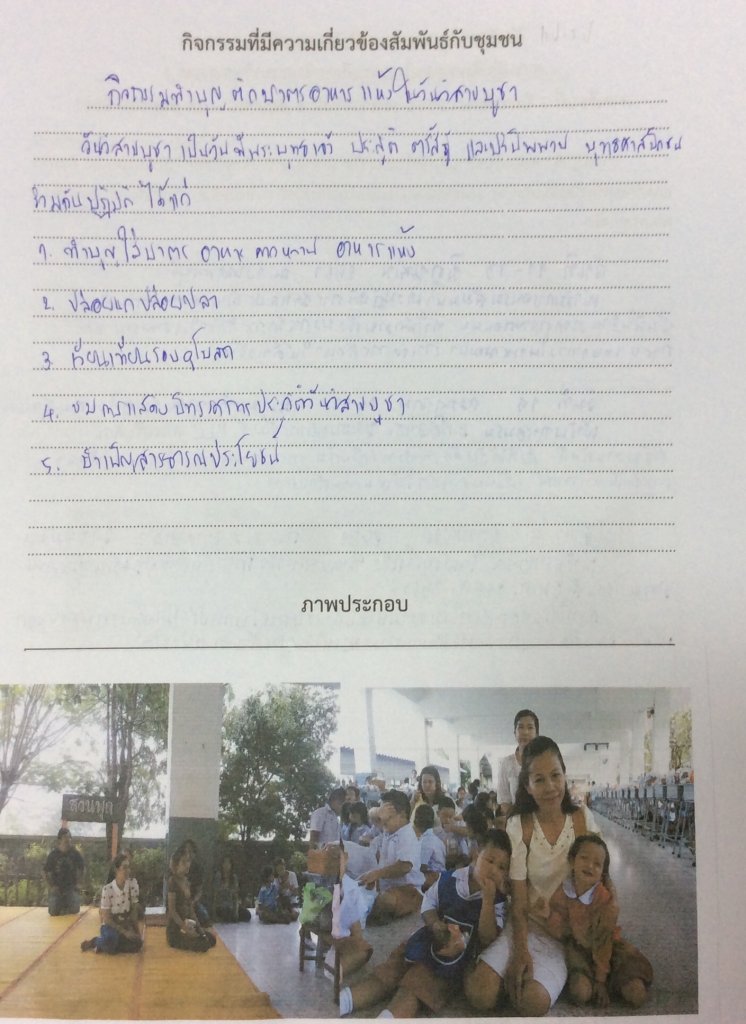 กิจกรรมที่มีความเกี่ยวข้องสัมพันธ์กับชุมชน
กิจกรรมทำบุญตักบาตรอาหารแห้งในวันวิสาขบูชา
วันวิสาขบูชา เป็นวันที่พระพุทธเจ้า ประสูติ ตรัสรู้ และปรินิพพาน พุทธศาสนิกชน
ร่วมกันปฏิบัติ ได้แก่
๑. ทำบุญใส่บาตร อาหารคาวหวาน อาหารแห้ง
2. ปล่อยนกปล่อยปลา
3. เวียนเทียนรอบอุโบสถ
4. ชมการแสดงนิทรรศการประวัติวันวิสาขบูชา
5. บำเพ็ญสาธารณประโยชน์
ภาพประกอบ